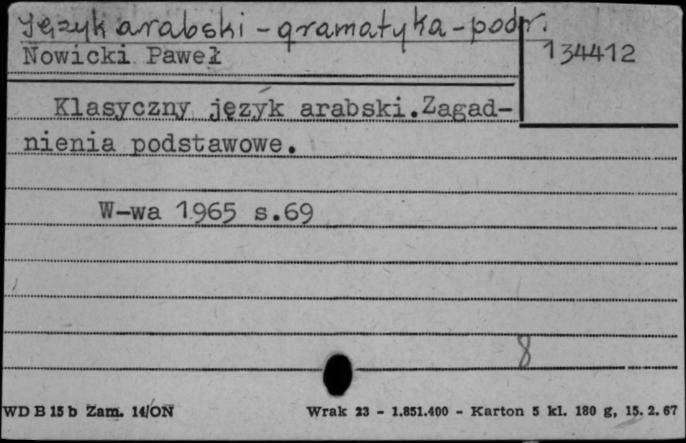 język arabski - gramatyka - podr.
Nowicki Paweł
134412
Klasyczny język arabski.Zagad-
nienia podstawowe.
W-wa 1965 s.69
8
WD B 15 b Zam. 14/ON
Wrak 23 - 1.851.400 - Karton 5 kl. 180 g, 15. 2. 67